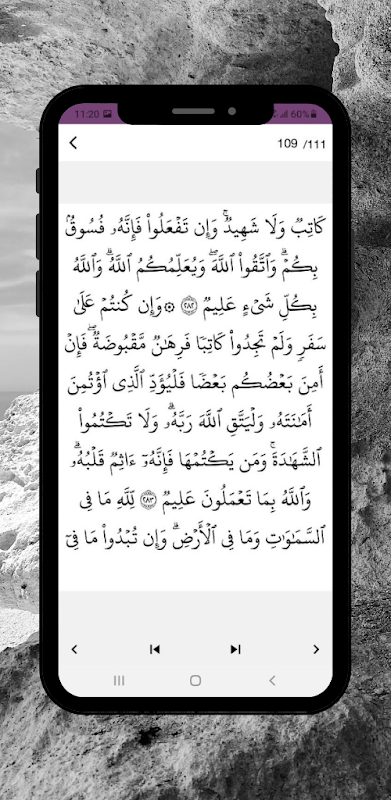 11:20 60%
109 /111
كَاتِبٌ وَلَا شَهِيدٌۚ وَإِن تَفْعَلُواْ فَإِنَّهُۥ فُسُوقُۢ
بِكُمْۗ وَٱتَّقُواْ ٱللَّهَۖ وَيُعَلِّمُكُمُ ٱللَّهُۗ وَٱللَّهُ
بِكُلِّ شَيْءٍ عَلِيمٌ ٢٨٢ ۞ وَإِن كُنتُمْ عَلَىٰ
سَفَرٍ وَلَمْ تَجِدُواْ كَاتِبًا فَرِهَٰنٌ مَّقْبُوضَةٌۖ فَإِنْ
أَمِنَ بَعْضُكُم بَعْضًا فَلْيُؤَدِّ ٱلَّذِى ٱؤْتُمِنَ
أَمَٰنَتَهُۥ وَلْيَتَّقِ ٱللَّهَ رَبَّهُۥۗ وَلَا تَكْتُمُواْ
ٱلشَّهَٰدَةَۚ وَمَن يَكْتُمْهَا فَإِنَّهُۥٓ ءَاثِمٌ قَلْبُهُۥۗ
وَٱللَّهُ بِمَا تَعْمَلُونَ عَلِيمٌ ٢٨٣ لِّلَّهِ مَا فِى
ٱلسَّمَٰوَٰتِ وَمَا فِى ٱلْأَرْضِۗ وَإِن تُبْدُواْ مَا فِىٓ